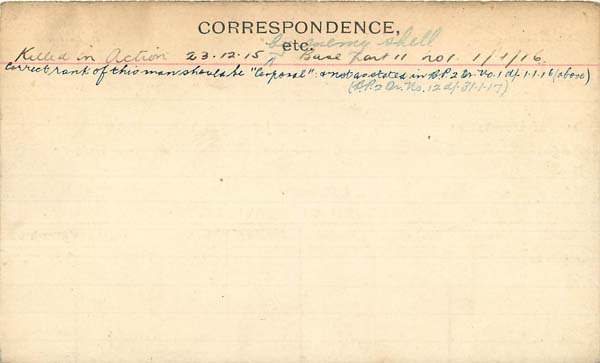 CORRESPONDENCE,
etc.
by enemy shell
Killed in Action 23.12.15 ^ Base Part II No 1. 1/1/16.
Correct rank of this man should be "Corporal": & not as stated in B.P. 2 Or. No. 1 d/- 1.1.16 (above)
(B.P. 2 Or. No. 12 d/- 31.1.17)